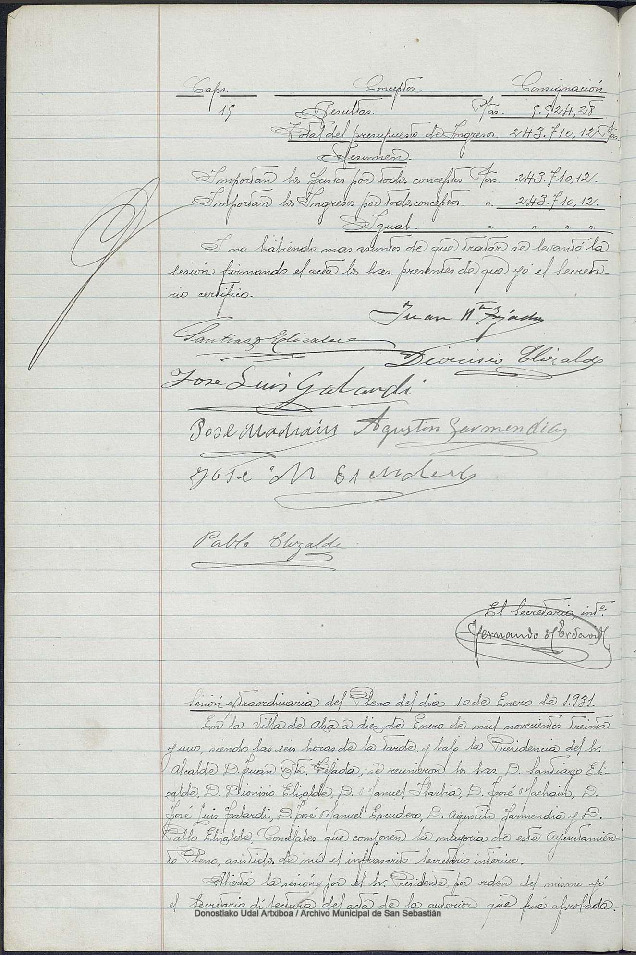 Caps. Conceptos. Consignación
15 Resultas. Ptas. 5.924,28
Total del presupuesto de Ingresos 243.710,12 Ptas.
Resumen.
Importan los Gastos por todos conceptos Ptas. 243.710,12.
Importan los Ingresos por todos conceptos " 243.710,12.
Igual. " " "
Y no habiendo mas asuntos de que tratar se levantó la
sesión, firmando el acta los Sres presentes de que yo el Secreta-
rio certifico.
Juan Mª Tejada
Santiago Elicalde
Dionisio Elizalde
Jose Luis Galardi
Jose Machain Agustin Garmendia
Jose M Escudero
Pablo Elizalde
El Secretario intº.
Fernando
Sesión extraordinaria del Pleno del dia 10 de Enero de 1.931.
En la Villa de Alza a diez de Enero de mil novecientos treinta
y uno, siendo las seis horas de la tarde, y bajo la Presidencia del Sr.
Alcalde D. Juan Mª Tejada, se reunieron los Sres. D. Santiago Eli-
calde, D. Dionisio Elizalde, D. Manuel D. José Machain, D.
José Luis Galardi, D. José Manuel Escudero, D. Agustin Garmendia y D.
Pablo Elizalde, Concejales que componen la mayoria de este Ayuntamien-
to Pleno, asistidos de mi el infrascrito Secretario interino.
Abierta la sesión por el Sr. Presidente, por orden del mismo yo
el Secretario di lectura del acta de la anterior que fue aprobada.
Donostiako Udal Artxiboa / Archivo Municipal de San Sebastián